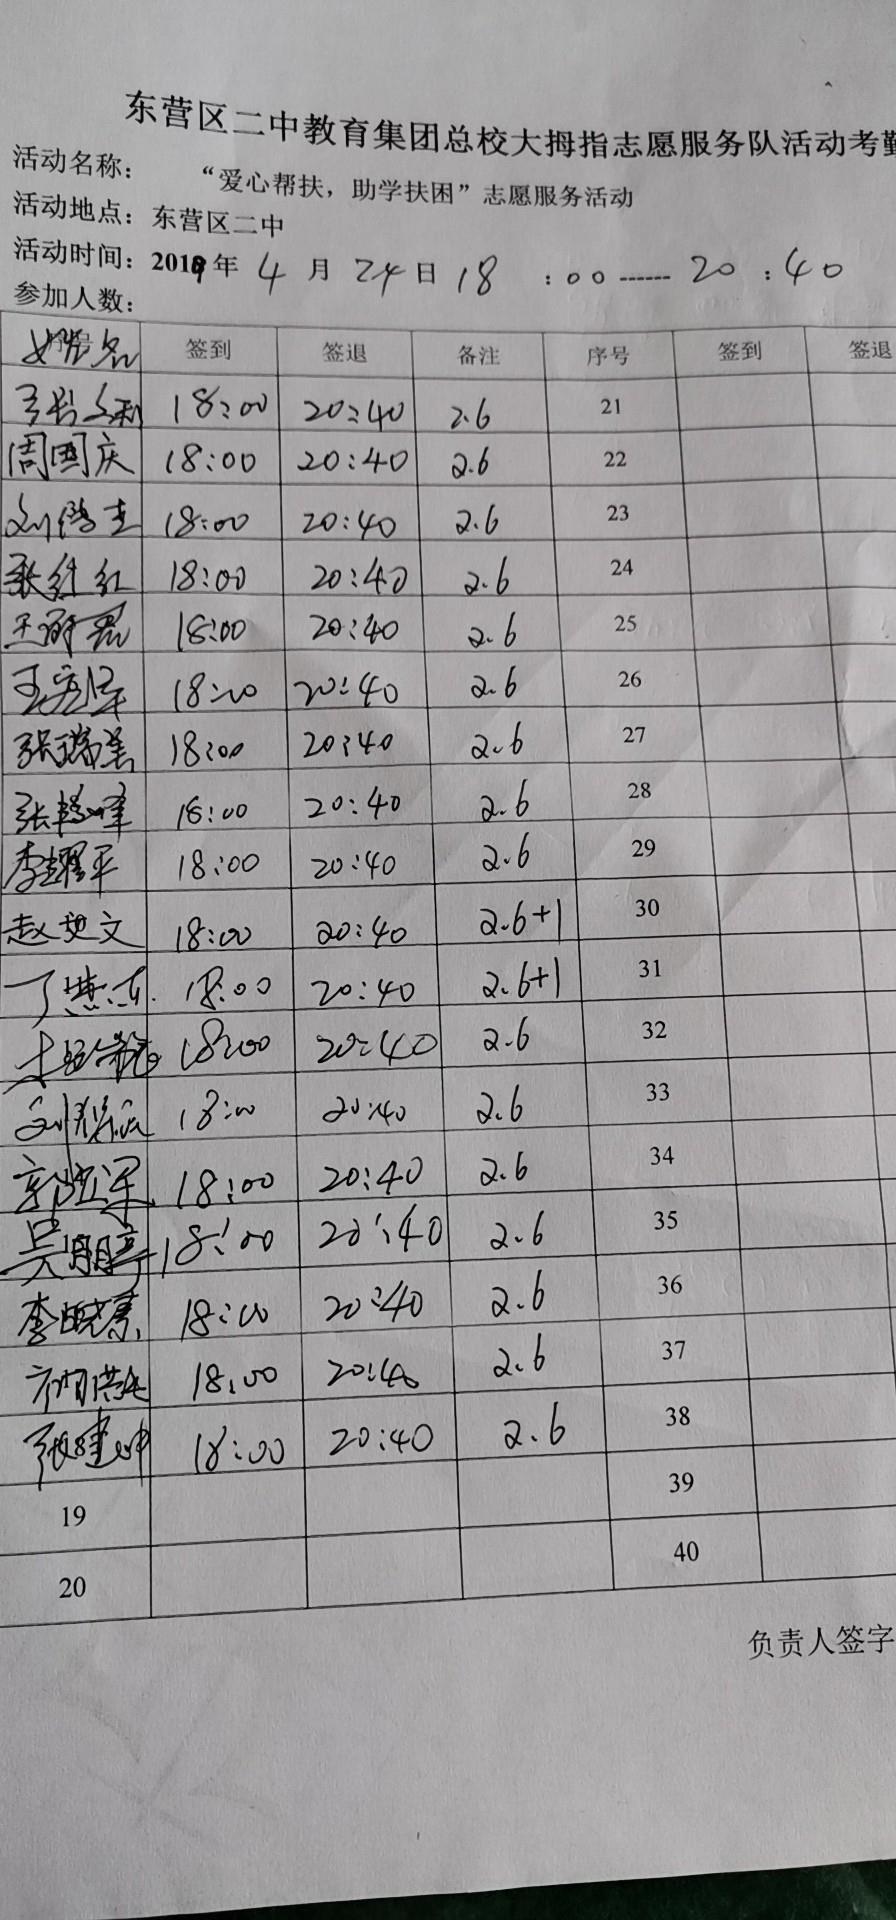 东营区二中教育集团总校大拇指志愿服务队活动考勤
活动名称： “爱心帮扶，助学扶困”志愿服务活动
活动地点：东营区二中
活动时间：2019年 4 月 24日 18 ：00------ 20 ：40
参加人数：
姓名 签到 签退 备注 序号 签到 签退
18:00 20:40 2.6 21
周国庆 18:00 20:40 2.6 22
18:00 20:40 2.6 23
张红红 18:00 20:40 2.6 24
18:00 20:40 2.6 25
18:00 20:40 2.6 26
张瑞美 18:00 20:40 2.6 27
张艳峰 18:00 20:40 2.6 28
李耀平 18:00 20:40 2.6 29
赵更文 18:00 20:40 2.6+1 30
丁燕东 18:00 20:40 2.6+1 31
18:00 20:40 2.6 32
18:00 20:40 2.6 33
18:00 20:40 2.6 34
吴朋亭 18:00 20:40 2.6 35
李晓燕 18:00 20:40 2.6 36
18:00 20:40 2.6 37
张建坤 18:00 20:40 2.6 38
19 39
20 40
负责人签字